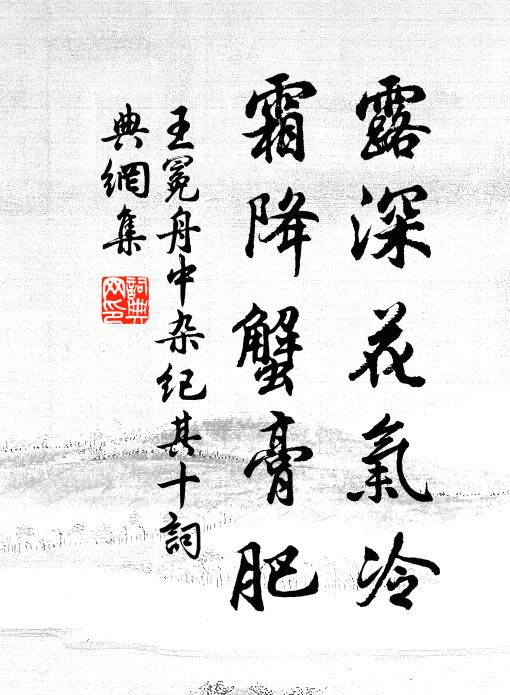 露深花氣冷
霜降蟹膏肥
王冕舟中杂纪其十詞
典網集
詞典
网印